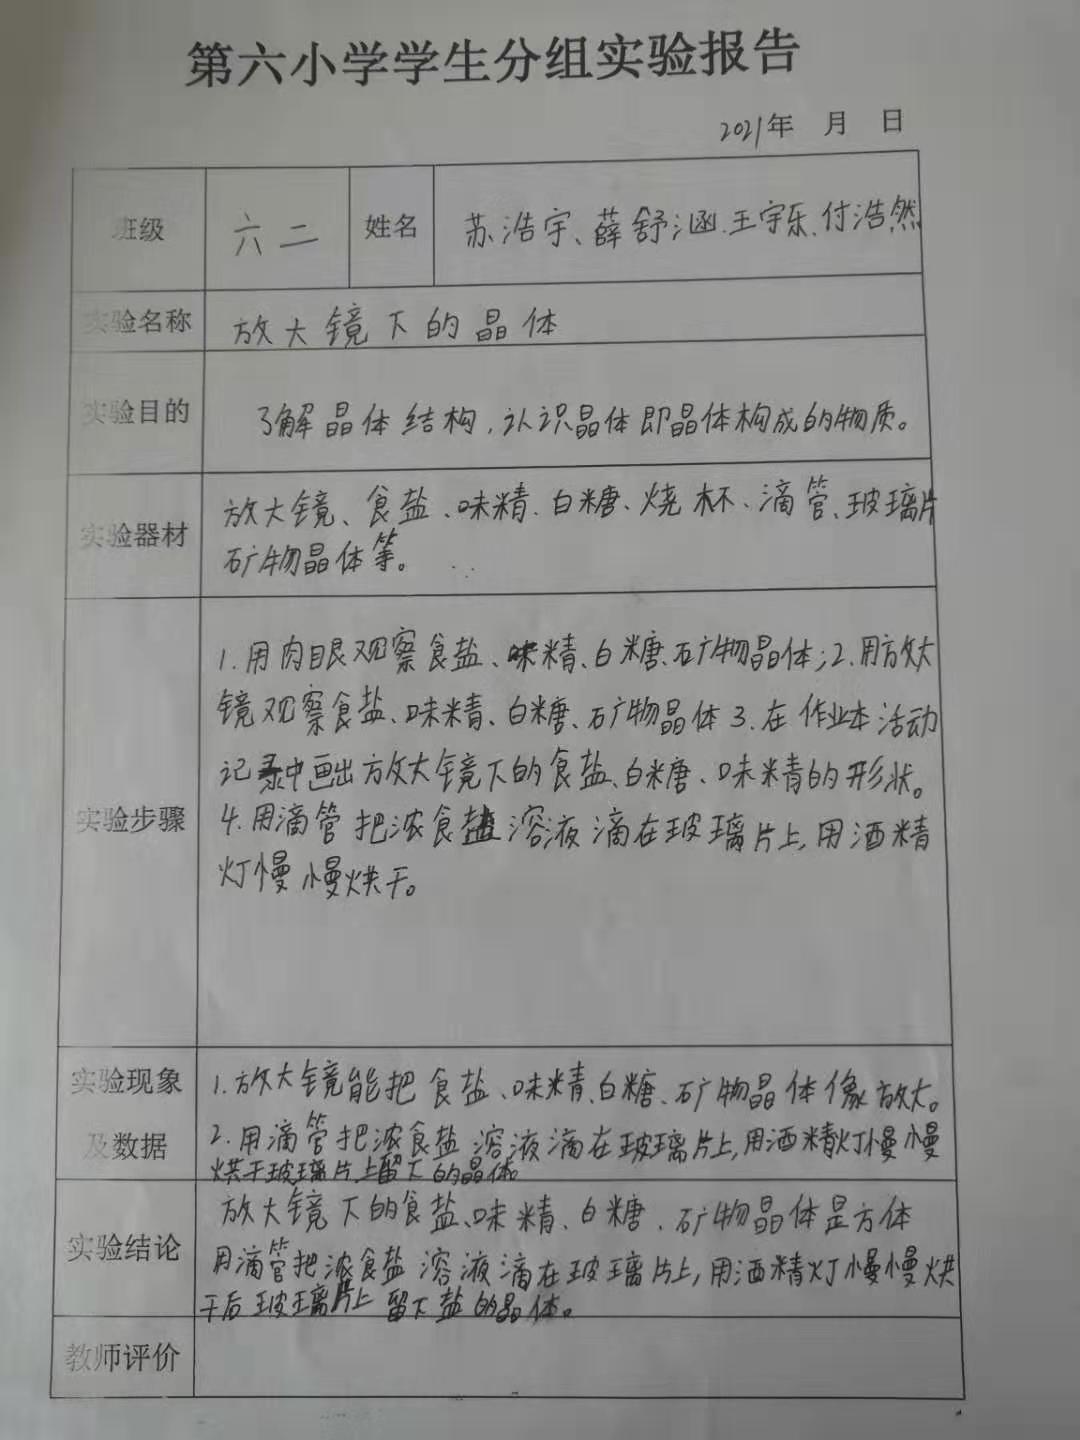 第六小学学生分组实验报告
2021年 月 日
班级 六二 姓名 苏浩宇、薛舒涵、王宇乐、付浩然
实验名称 放大镜下的晶体
实验目的 了解晶体结构,认识晶体即晶体构成的物质。
实验器材 放大镜、食盐、味精、白糖、烧杯、滴管、玻璃片
矿物晶体等。
实验步骤
1.用肉眼观察食盐、味精、白糖、矿物晶体;2.用放大
镜观察食盐、味精、白糖、矿物晶体3.在作业本活动
记录中画出放大镜下的食盐、白糖、味精的形状。
4.用滴管把浓食盐溶液滴在玻璃片上,用酒精
灯慢慢烘干。
实验现象
及数据
1.放大镜能把食盐、味精、白糖、矿物晶体像放大。
2.用滴管把浓食盐溶液滴在玻璃片上,用酒精灯慢慢
烘干玻璃片上留下的晶体。
实验结论
放大镜下的食盐、味精、白糖、矿物晶体是方体
用滴管把浓食盐溶液滴在玻璃片上,用酒精灯慢慢烘
干后玻璃片上留下盐的晶体。
教师评价